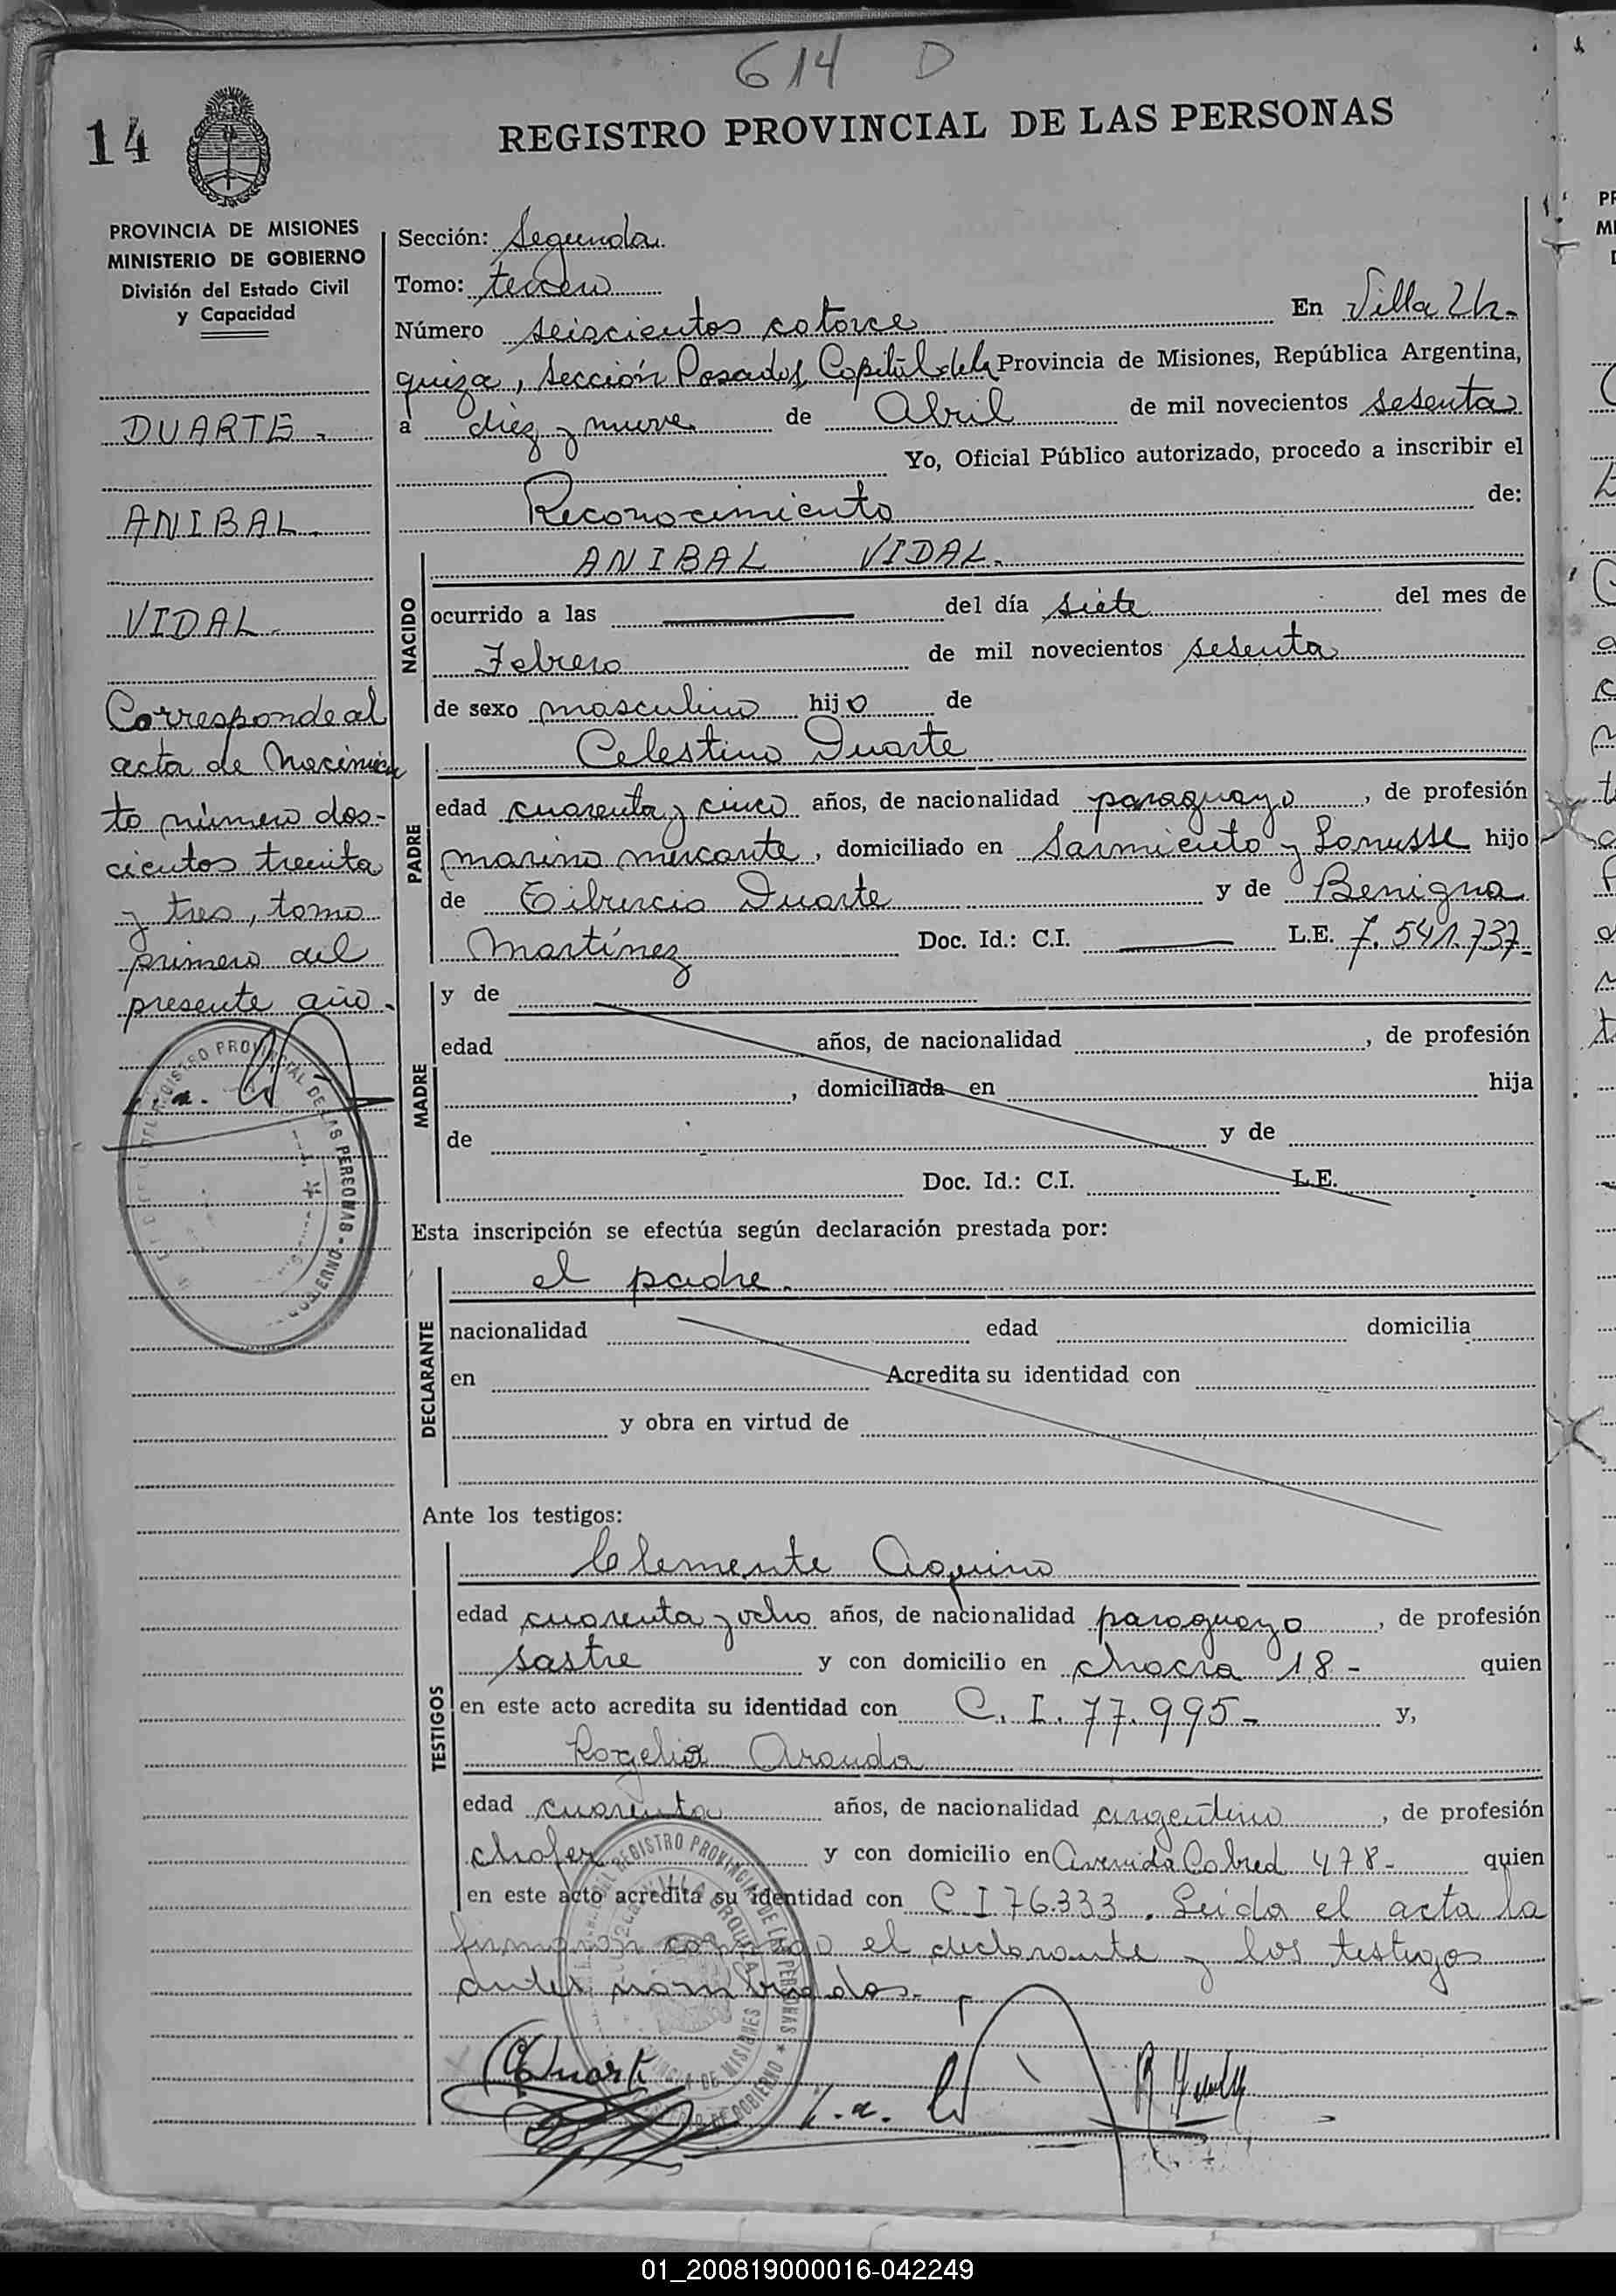 614 D
14
REGISTRO PROVINCIAL DE LAS PERSONAS
PROVINCIA DE MISIONES
MINISTERIO DE GOBIERNO
División del Estado Civil
y Capacidad
DUARTE.
ANIBAL.
VIDAL.
Corresponde al
acta de Nacimien
to número dos-
cientos treinta
y tres, tomo
primero del
presente año.
Sección: Segunda
Tomo: tercero
Número seiscientos catorce En Villa Ur-
quiza, Sección Posadas, Capital de la Provincia de Misiones, República Argentina,
a diez y nueve de Abril de mil novecientos sesenta
Yo, Oficial Público autorizado, procedo a inscribir el
Reconocimiento de:
NACIDO
ANIBAL VIDAL.
ocurrido a las del día siete del mes de
Febrero de mil novecientos sesenta
de sexo masculino hijo de
PADRE
Celestino Duarte
edad cuarenta y cinco años, de nacionalidad paraguayo, de profesión
marino mercante, domiciliado en Sarmiento y Lanusse hijo
de Tibursio Duarte y de Benigna
Martínez Doc. Id.: C.I. L.E. 7.541.737-
MADRE
y de
edad años, de nacionalidad , de profesión
, domiciliada en hija
de y de
Doc. Id.: C.I. L.E.
Esta inscripción se efectúa según declaración prestada por:
DECLARANTE
el padre.
nacionalidad edad domicilia
en Acredita su identidad con
y obra en virtud de
Ante los testigos:
TESTIGOS
Clemente Aquino
edad cuarenta y ocho años, de nacionalidad paraguayo, de profesión
sastre y con domicilio en chacra 18- quien
en este acto acredita su identidad con C. I. 77.995- y,
Rogelio Aranda
edad cuarenta años, de nacionalidad argentino, de profesión
chofer y con domicilio en Avenida Cabred 478- quien
en este acto acredita su identidad con C I 76.333. Leida el acta la
firmaron conmigo el declarante y los testigos
antes nombrados.-
CDuarte
REGISTRO PROVINCIAL DE LAS PERSONAS
01_200819000016-042249